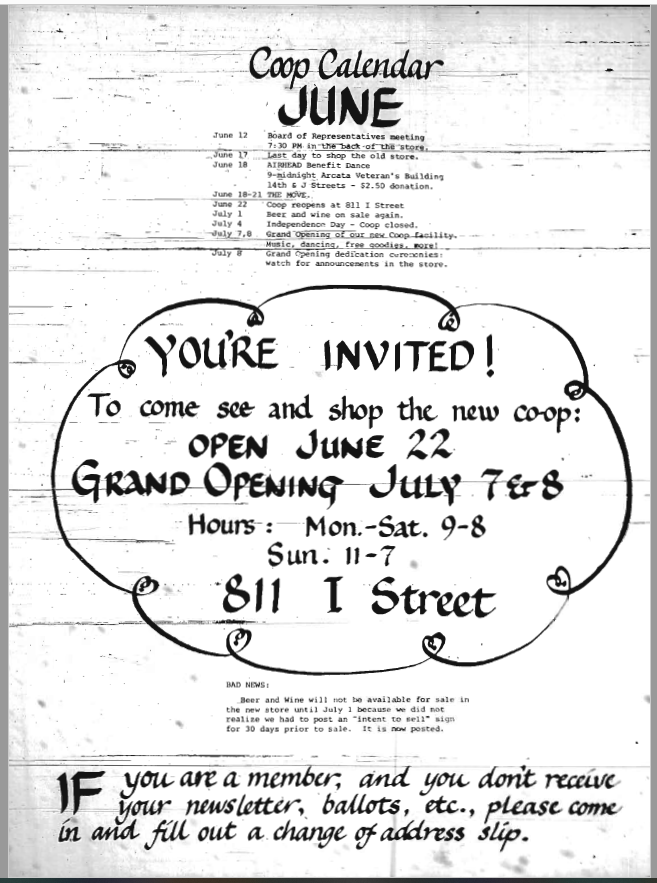 Coop Calendar
JUNE
June 12 Board of Representatives meeting
7:30 PM in the back of the store.
June 17 Last day to shop the old store.
June 18 AIRHEAD Benefit Dance
9-midnight Arcata Veteran's Building
14th & J Streets - $2.50 donation.
June 18-21 THE MOVE.
June 22 Coop reopens at 811 I Street
July 1 Beer and wine on sale again.
July 4 Independence Day - Coop closed.
July 7,8 Grand Opening of our new Coop facility.
Music, dancing, free goodies, more!
July 8 Grand Opening dedication ceremonies:
watch for announcements in the store.
YOU'RE INVITED!
To come see and shop the new co-op:
OPEN JUNE 22
GRAND OPENING JULY 7&8
Hours: Mon.-Sat. 9-8
Sun. 11-7
811 I Street
BAD NEWS:
Beer and Wine will not be available for sale in
the new store until July 1 because we did not
realize we had to post an "intent to sell" sign
for 30 days prior to sale. It is now posted.
IF you are a member, and you don't receive
your newsletter, ballots, etc., please come
in and fill out a change of address slip.